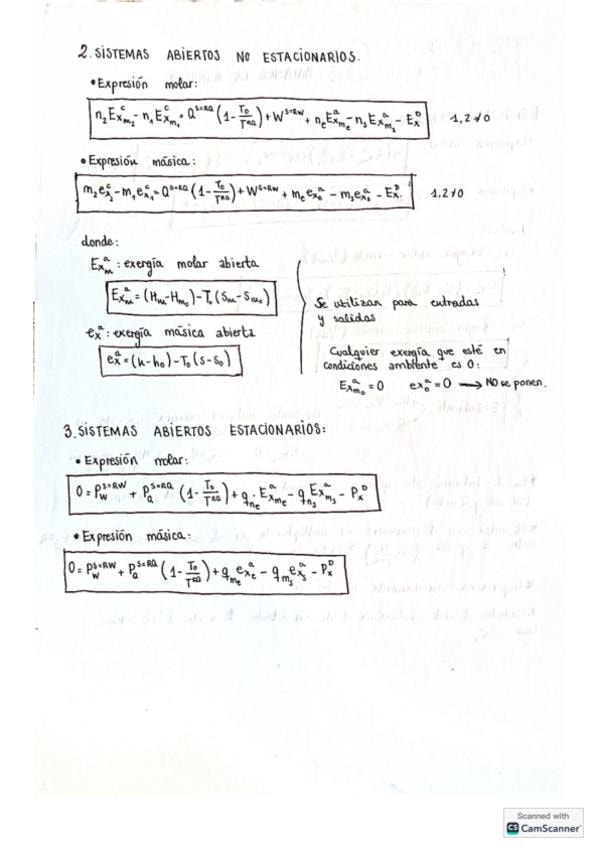 2. SISTEMAS ABIERTOS NO ESTACIONARIOS.
• Expresión molar:
n₂Exᶜm₂ - n₁Exᶜm₁ = Q^S=RQ (1 - T₀/T^RQ) + W^S=RW + nₑExᵃmₑ - nₛExᵃmₛ - Exᴰ 1,2 ≠ 0
• Expresión másica:
m₂exᶜ₂ - m₁exᶜ₁ = Q^S=RQ (1 - T₀/T^RQ) + W^S=RW + mₑexᵃₑ - mₛexᵃₛ - Exᴰ 1,2 ≠ 0
donde:
Exᵃm : exergía molar abierta
Exᵃm = (Hm - Hm₀) - T₀(Sm - Sm₀)
exᵃ : exergía másica abierta
exᵃ = (h - h₀) - T₀(s - s₀)
Se utilizan para entradas
y salidas
Cualquier exergía que esté en
condiciones ambiente es 0:
Exᵃm₀ = 0 exᵃ₀ = 0 → NO se ponen.
3. SISTEMAS ABIERTOS ESTACIONARIOS:
• Expresión molar:
0 = P_W^S=RW + P_Q^S=RQ (1 - T₀/T^RQ) + qnₑ Exᵃmₑ - qnₛ Exᵃmₛ - Pxᴰ
• Expresión másica:
0 = P_W^S=RW + P_Q^S=RQ (1 - T₀/T^RQ) + qmₑ exᵃₑ - qmₛ exᵃₛ - Pxᴰ
Scanned with
CS CamScanner